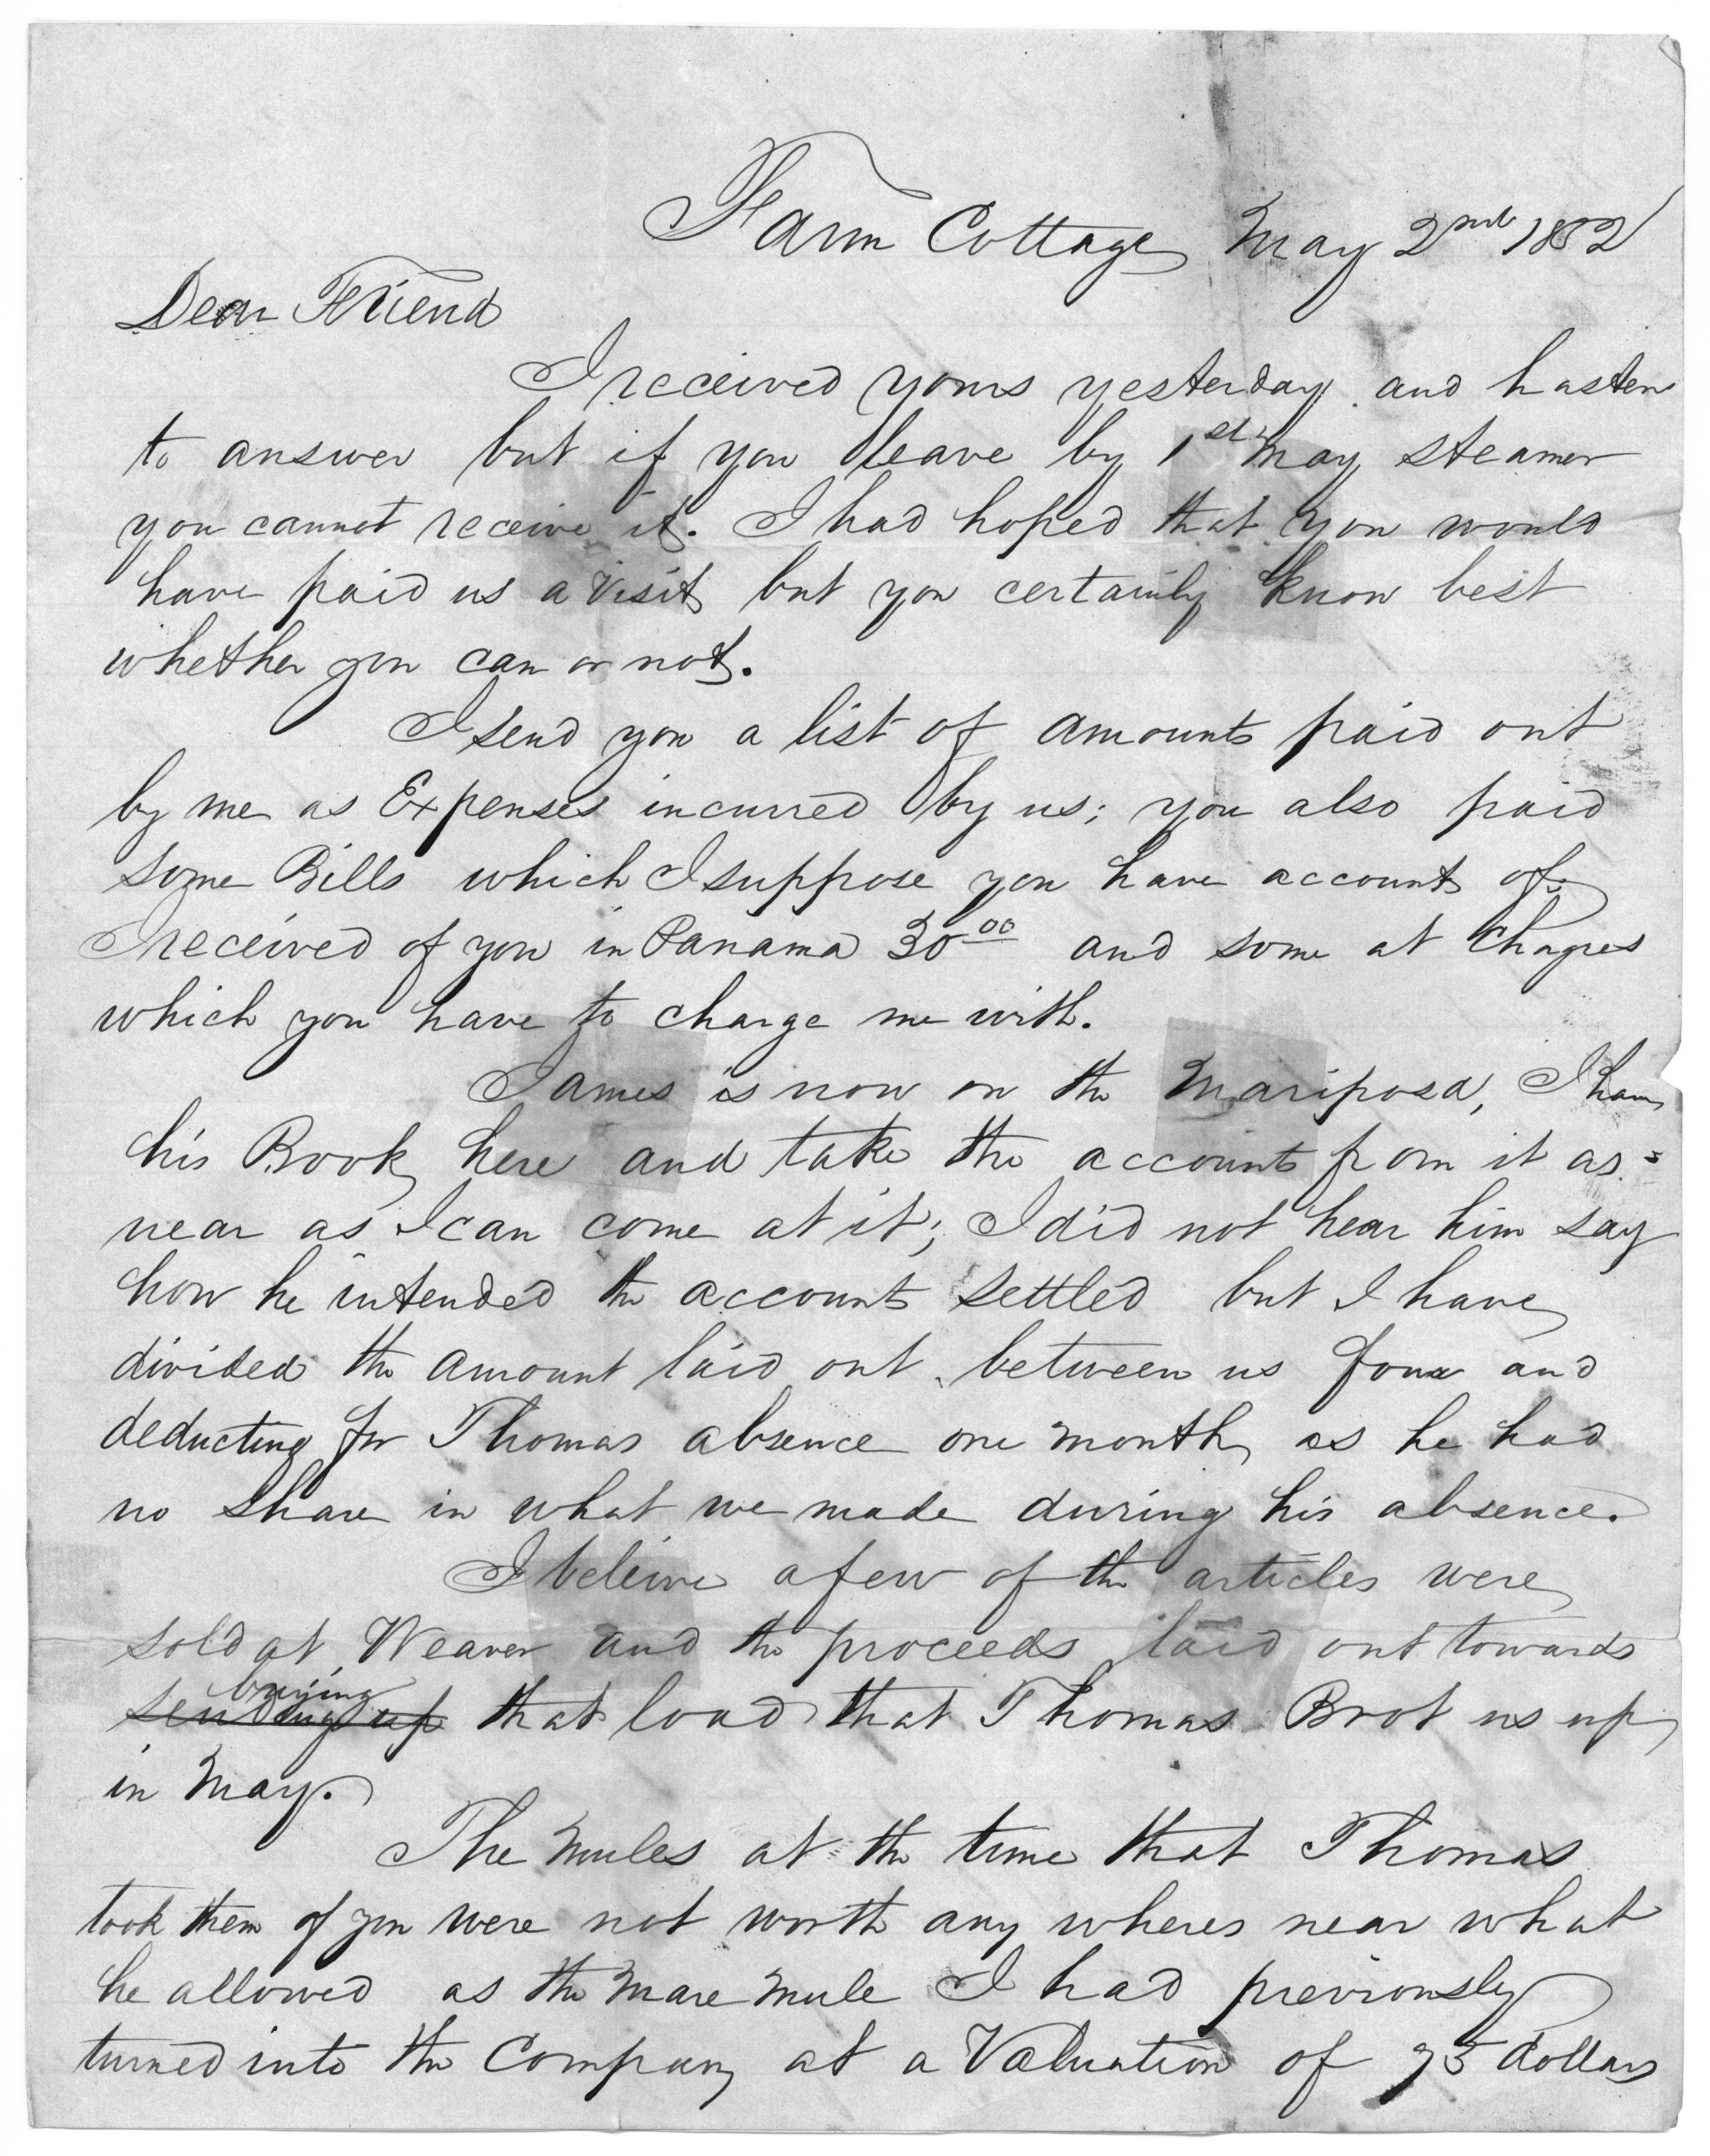 Farm Cottage May 2nd 1852
Dear Friend
I received yours yesterday and hasten
to answer but if you leave by 1st May steamer
you cannot receive it. I had hoped that you would
have paid us a visit but you certainly know best
whether you can or not.
I send you a list of amounts paid out
by me as Expenses incurred by us; you also paid
some Bills which I suppose you have account of.
I received of you in Panama 30 00 and some at Chagres
which you have to charge me with.
James is now on the Mariposa, I have
his Book here and take the accounts from it as
near as I can come at it; I did not hear him say
how he intended the accounts settled but I have
divided the amount laid out between us four and
deducting for Thomas absence one month as he had
no share in what we made during his absence.
I beleive a few of the articles were
sold at Weaver and the proceeds laid out towards
buying
sending up that load that Thomas Brot us up
in May.
The mules at the time that Thomas
took them of you were not worth any wheres near what
he allowed as the mare mule I had previously
turned into the Company at a Valuation of 75 dollars